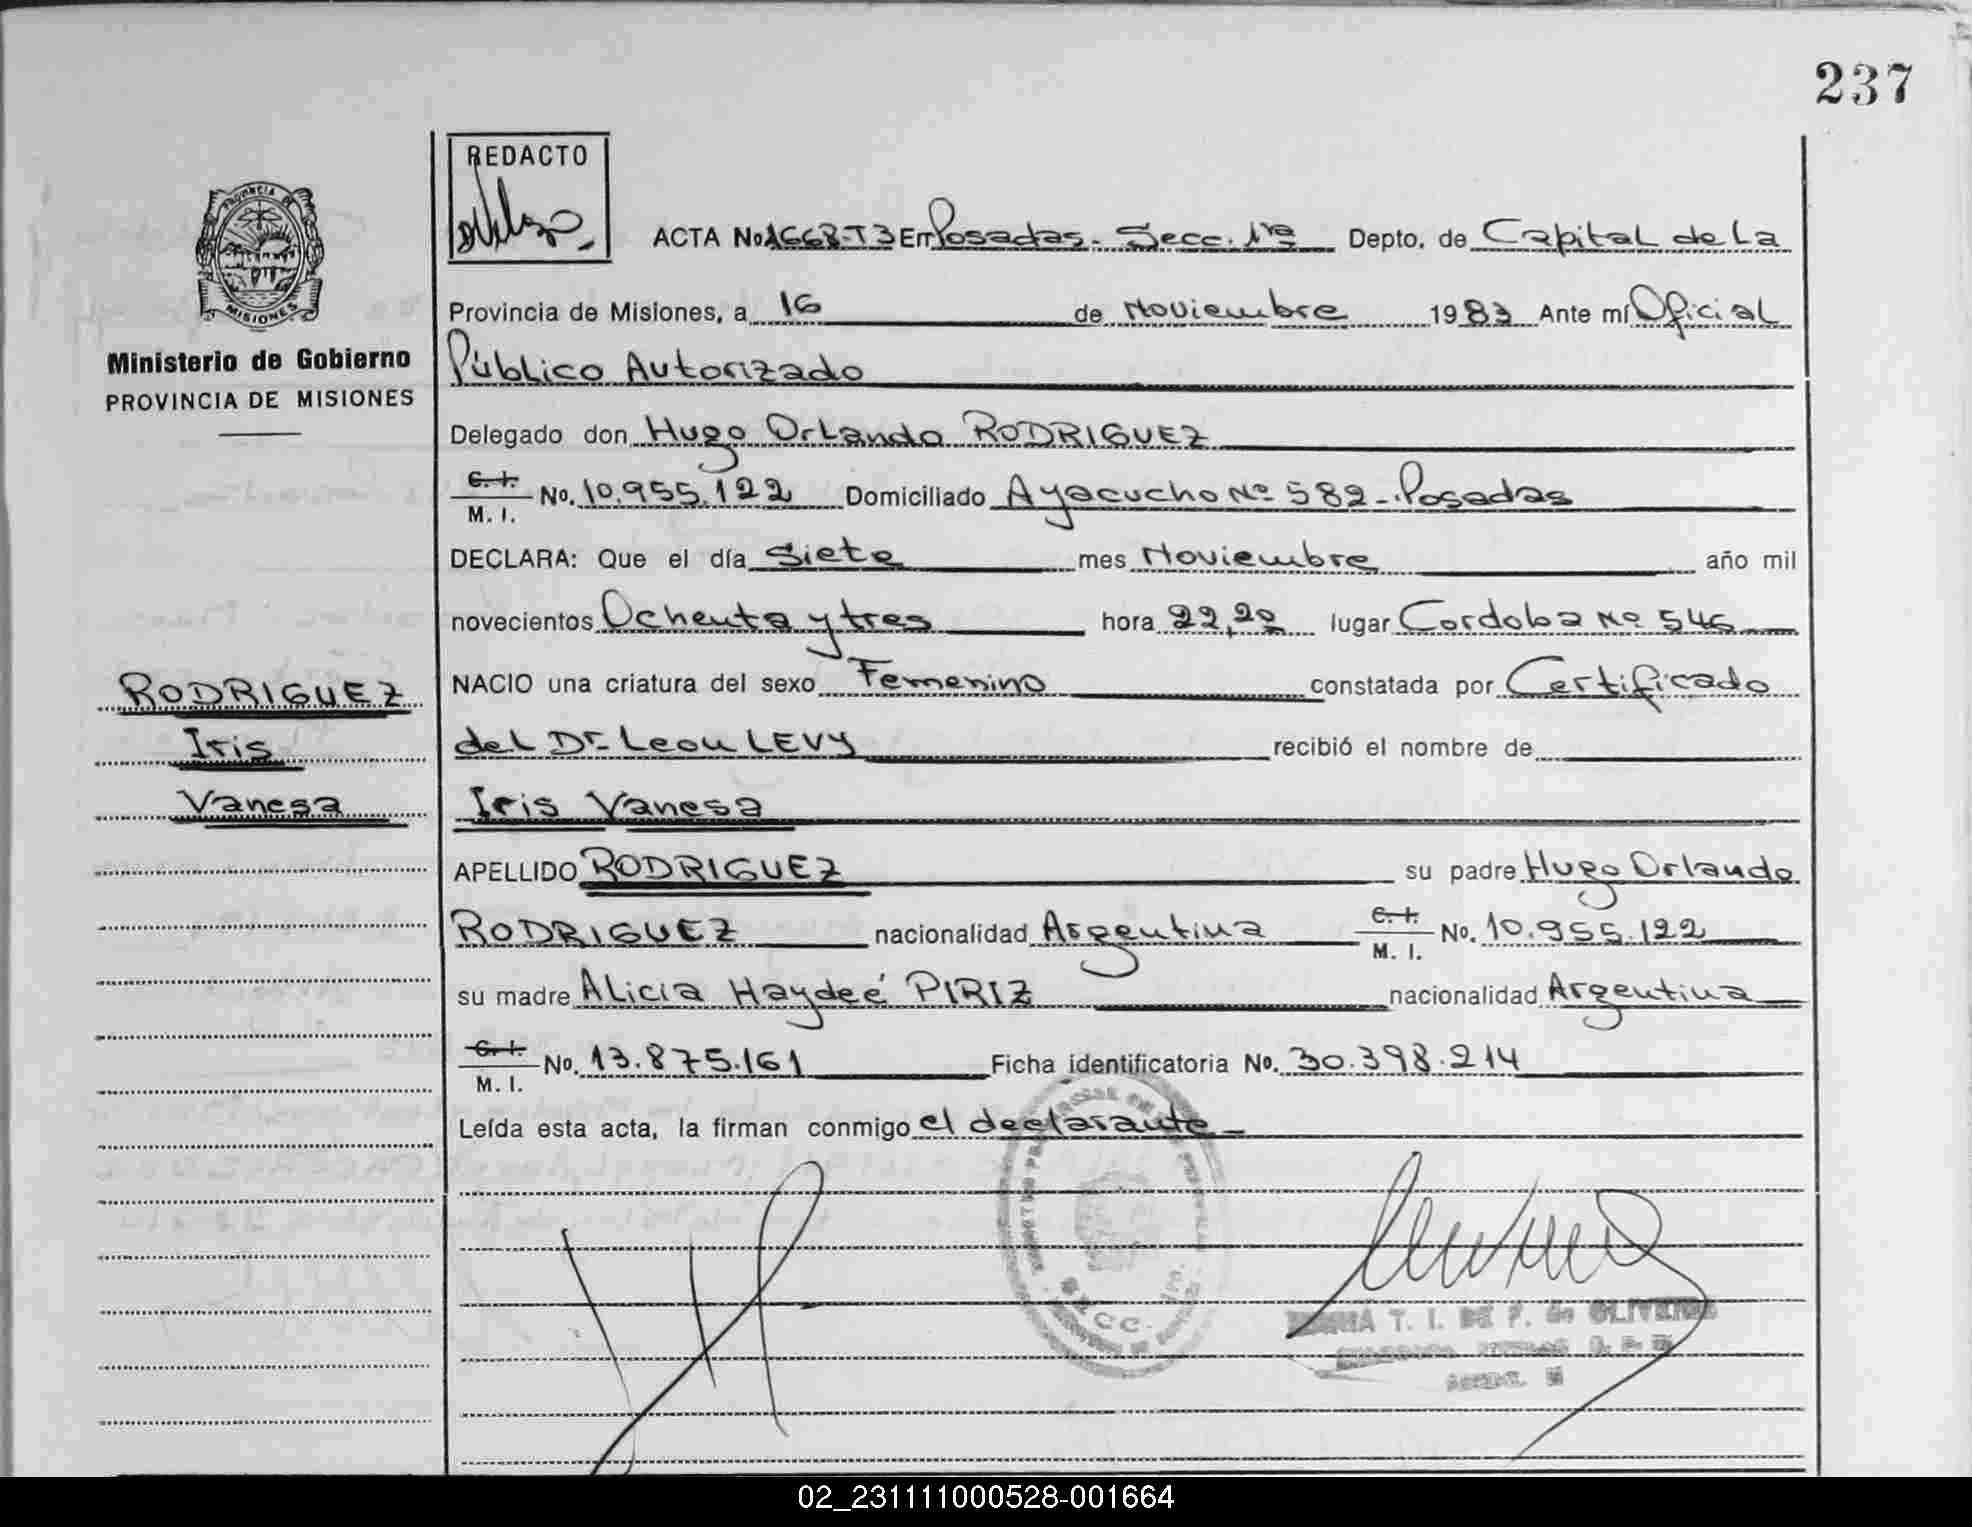 237
REDACTO
ACTA No 1668-T3 En Posadas- Secc. 1ra Depto. de Capital de La
Provincia de Misiones, a 16 de Noviembre 1983 Ante mí Oficial
Público Autorizado
Delegado don Hugo Orlando RODRIGUEZ
C. I. M. I. No. 10.955.122 Domiciliado Ayacucho Nº 582-Posadas
DECLARA: Que el día Siete mes Noviembre año mil
novecientos Ochenta y tres hora 22,22 lugar Cordoba Nº 546
NACIO una criatura del sexo Femenino constatada por Certificado
del Dr. Leon LEVY recibió el nombre de
Iris Vanesa
APELLIDO RODRIGUEZ su padre Hugo Orlando
RODRIGUEZ nacionalidad Argentina C. I. M. I. No. 10.955.122
su madre Alicia Haydeé PIRIZ nacionalidad Argentina
C. I. M. I. No. 13.875.161 Ficha identificatoria No. 30.398.214
Leída esta acta, la firman conmigo el declarante
PROVINCIA DE
MISIONES
Ministerio de Gobierno
PROVINCIA DE MISIONES
RODRIGUEZ
Iris
Vanesa
SECC.
T. I. DE F. de OLIVEIRA
02_231111000528-001664